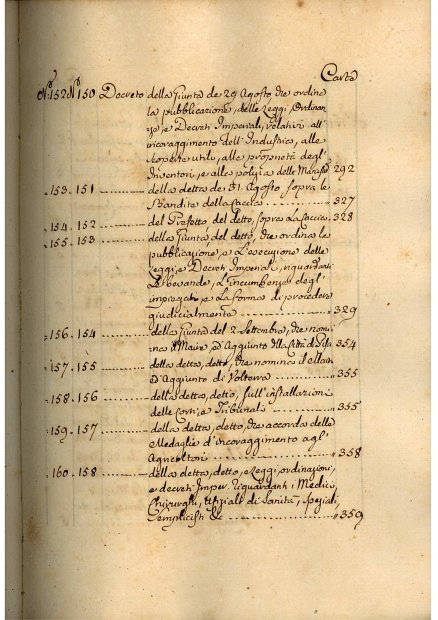 Carte
N.° 152 N.° 150 Decreto della Giunta de 29 Agosto che ordina
la pubblicazione, delle Leggi, Ordinan
ze, e Decreti Imperiali, relativi all'
incoraggimento dell' Industria, alle
scoperte utili, alla proprietà degl'
Inventori, e alla polizia delle Manifre 292
" 153. 151 .......... della detta de 31. Agosto sopra le
Bandite della Caccia ............ " 327
" 154. 152 .......... del Prefetto del detto, sopra La Caccia. 328
" 155. 153 .......... della Giunta, del detto, che ordina la
pubblicazione, e L'esecuzione delle
Leggi, e Decreti Imperiali, riguardanti
L'incumbenze degl'
impiegati, e La forma di procedere
giudicialmente ............ " 329
" 156. 154 .......... della Giunta del 2. Settembre, che nomi
na il Maire, ed Aggiunto della Città di 354
" 157. 155 .......... della detta, detto, che nomina il Maire
ed Aggiunto di Volterra ............ " 355
" 158. 156 .......... della detta, detto, sull' installazione
delle Corti, e Tribunali ............ " 355
" 159. 157 .......... della detta, detto, che accorda delle
Medaglie d'incoraggimento agl'
Agricoltori ............ " 358
" 160. 158 .......... della detta, detto, e Leggi, ordinazioni,
e decreti Imper. riguardanti i Medici,
Chirurghi, Uffiziali di Sanità, speziali,
Semplicisti &c ............ " 359